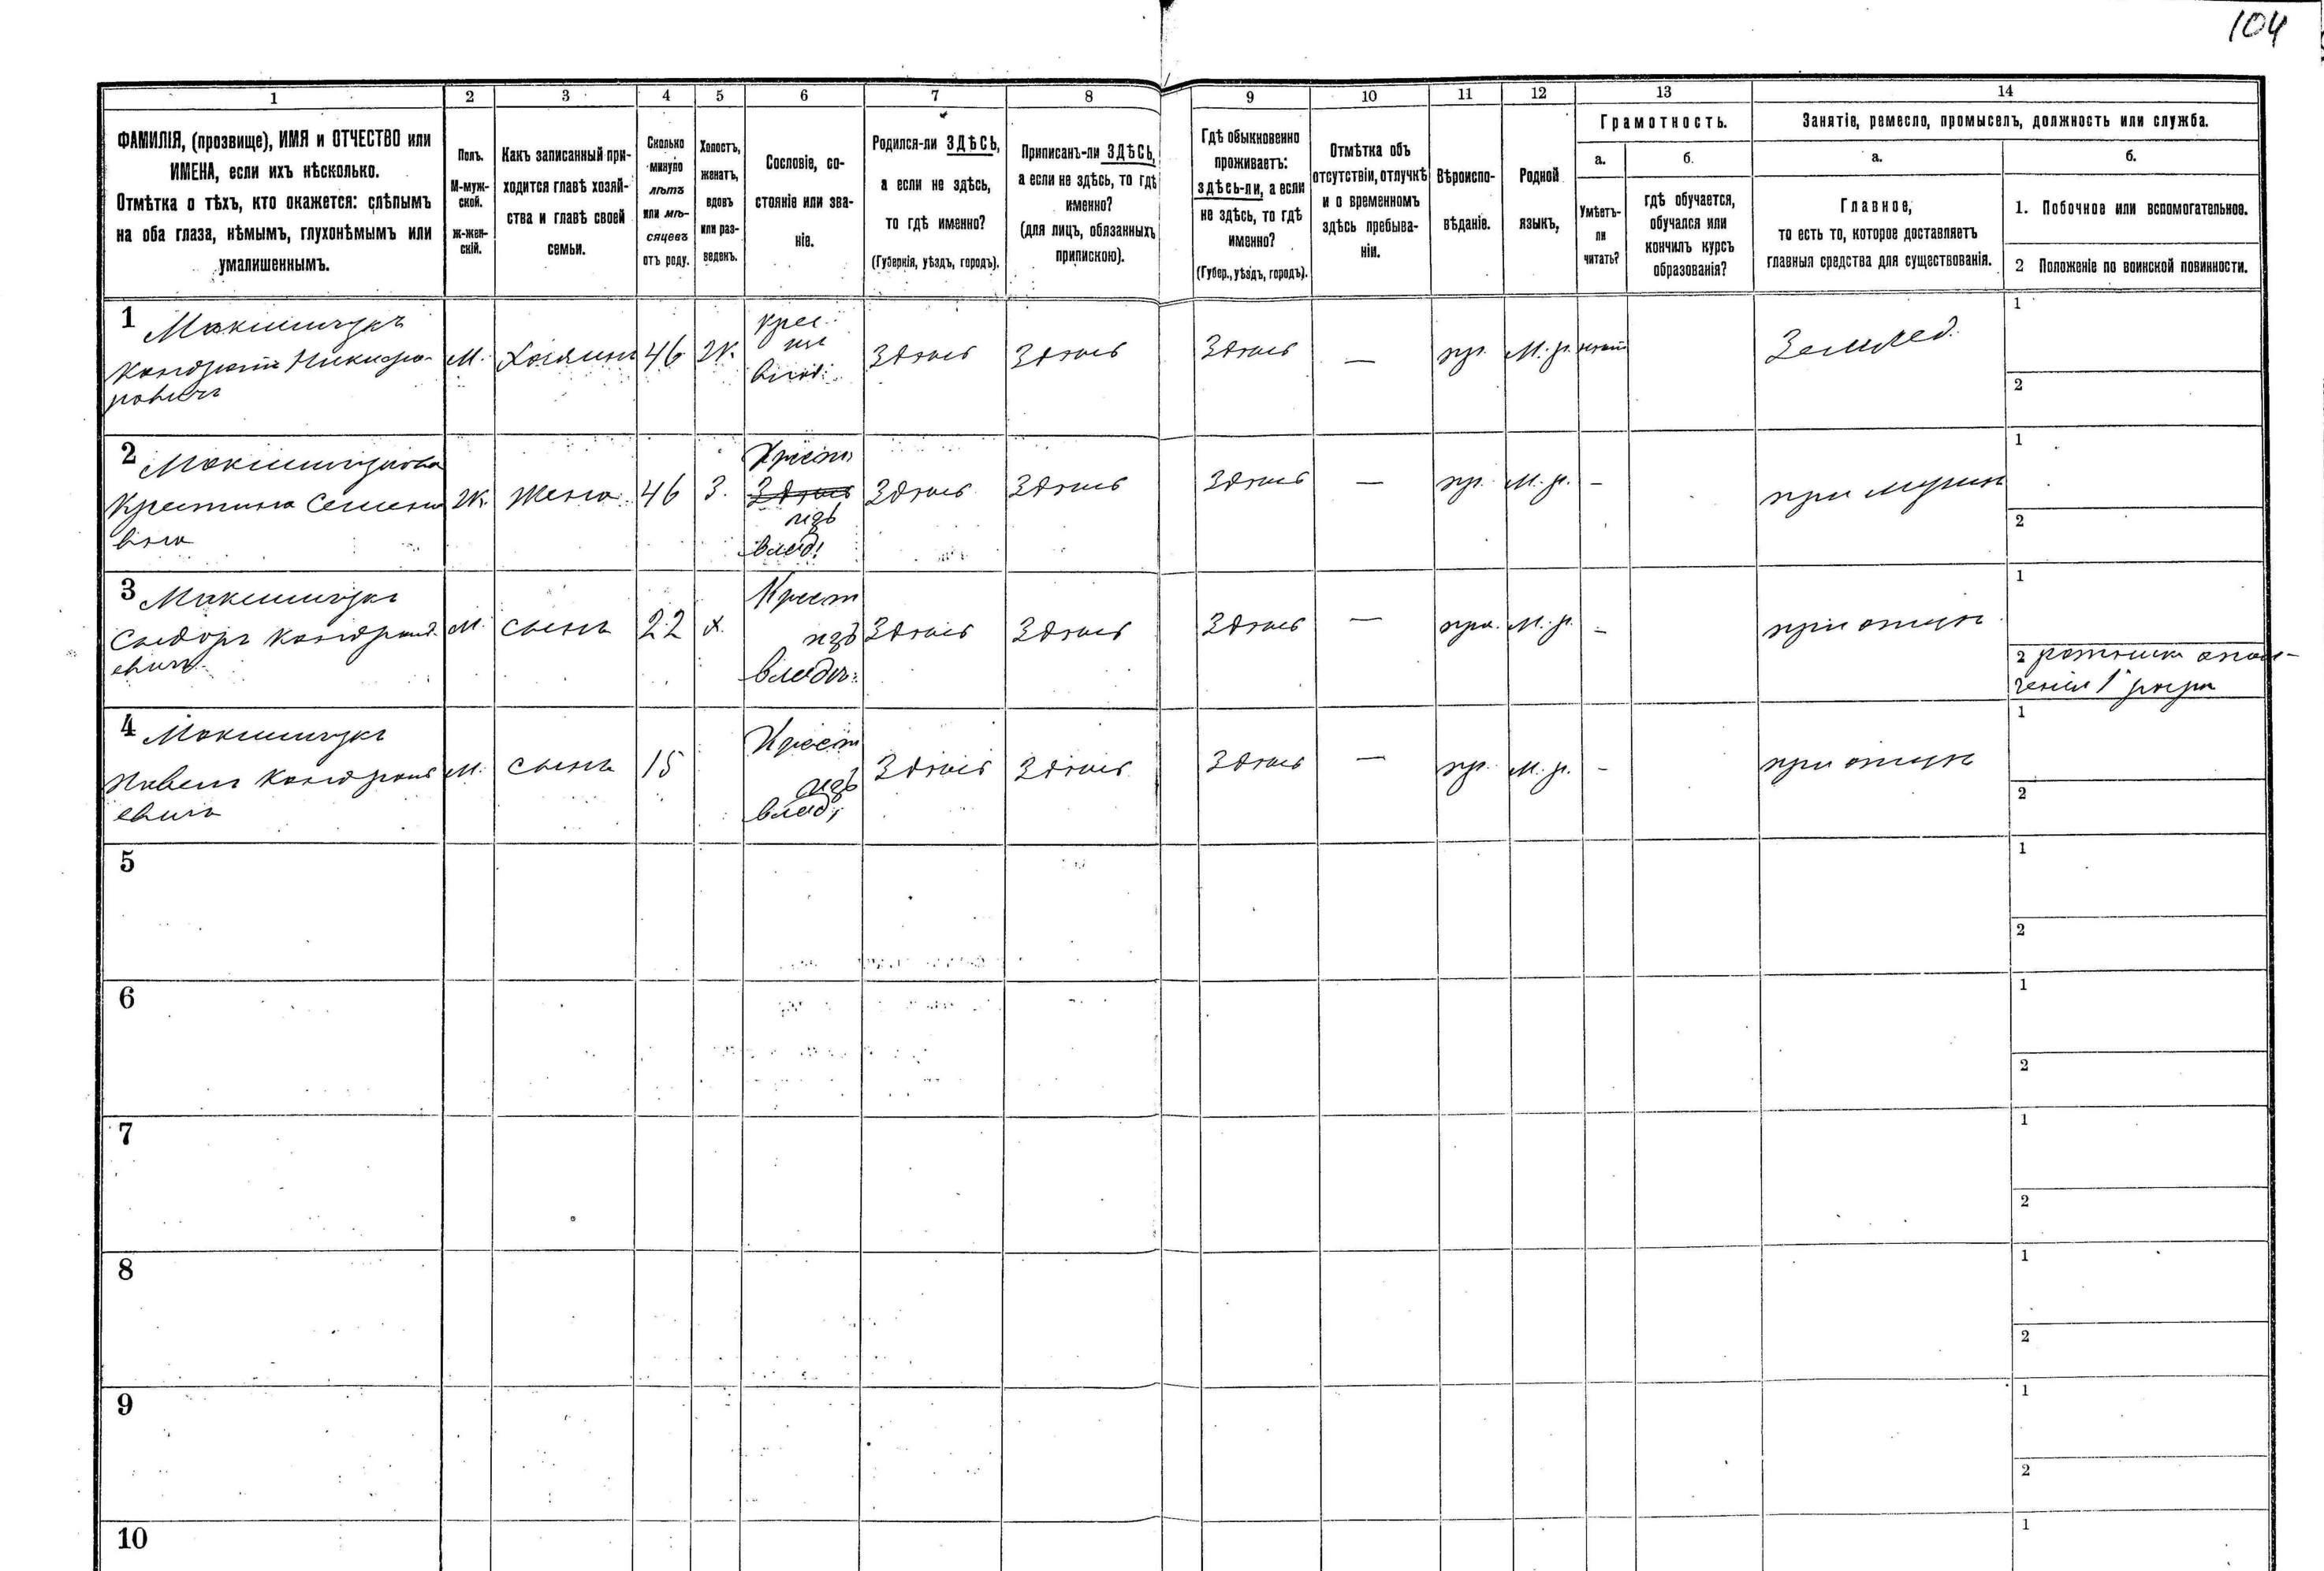 104
1 2 3 4 5 6 7 8 9 10 11 12 13 14
ФАМИЛІЯ, (прозвище), ИМЯ и ОТЧЕСТВО или
ИМЕНА, если ихъ нѣсколько.
Отмѣтка о тѣхъ, кто окажется: слѣпымъ
на оба глаза, нѣмымъ, глухонѣмымъ или
умалишеннымъ.
Полъ.
М-муж-
ской.
ж-жен-
скій.
Какъ записанный при-
ходится главѣ хозяй-
ства и главѣ своей
семьи.
Сколько
минуло
лѣтъ
или мѣ-
сяцевъ
отъ роду.
Холостъ,
женатъ,
вдовъ
или раз-
веденъ.
Сословіе, со-
стояніе или зва-
ніе.
Родился-ли ЗДѢСЬ,
а если не здѣсь,
то гдѣ именно?
(Губернія, уѣздъ, городъ).
Приписанъ-ли ЗДѢСЬ,
а если не здѣсь, то гдѣ
именно?
(для лицъ, обязанныхъ
припискою).
Гдѣ обыкновенно
проживаетъ:
здѣсь-ли, а если
не здѣсь, то гдѣ
именно?
(Губер., уѣздъ, городъ).
Отмѣтка объ
отсутствіи, отлучкѣ
и о временномъ
здѣсь пребыва-
ніи.
Вѣроиспо-
вѣданіе.
Родной
языкъ,
Грамотность.
а.
Умѣетъ-
ли
читать?
б.
гдѣ обучается,
обучался или
кончилъ курсъ
образованія?
Занятіе, ремесло, промыселъ, должность или служба.
а.
Главное,
то есть то, которое доставляетъ
главныя средства для существованія.
б.
1. Побочное или вспомогательное.
2 Положеніе по воинской повинности.
1 Максимчукъ
Кондратій Никифо-
ровичъ
М. Хозяинъ 46 Ж.
крес
изъ
влад:
Здѣсь Здѣсь Здѣсь — пр. М. р. Землед.
1
2
2 Максимчукова
Крестина Семено
вна
Ж. Жена 46 З.
Крест
Здѣсь
изъ
влад:
Здѣсь Здѣсь Здѣсь — пр. М. р. — при мужѣ
1
2
3 Максимчукъ
Сидоръ Кондрат-
евичъ
М. сынъ 22 Х.
Крест
изъ
владѣ:
Здѣсь Здѣсь Здѣсь — пра. М. р. — при отцѣ
1
2 ратникъ опол-
ченія 1 разр
4 Максимчукъ
Павелъ Кондрат
евичъ
М. сынъ 15
Крест
изъ
влад:
Здѣсь Здѣсь Здѣсь — пр. М. р. — при отцѣ
1
2
5
1
2
6
1
2
7
1
2
8
1
2
9
1
2
10
1